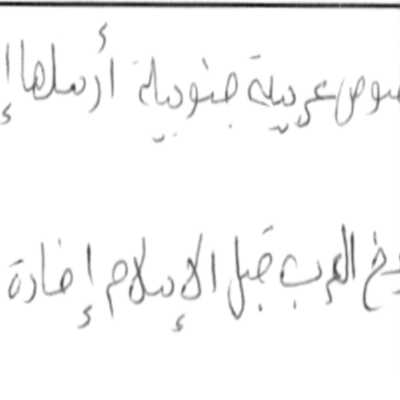 نصوص عربية جنوبية أرسلها إ
يخ العرب قبل الإسلام إضادة